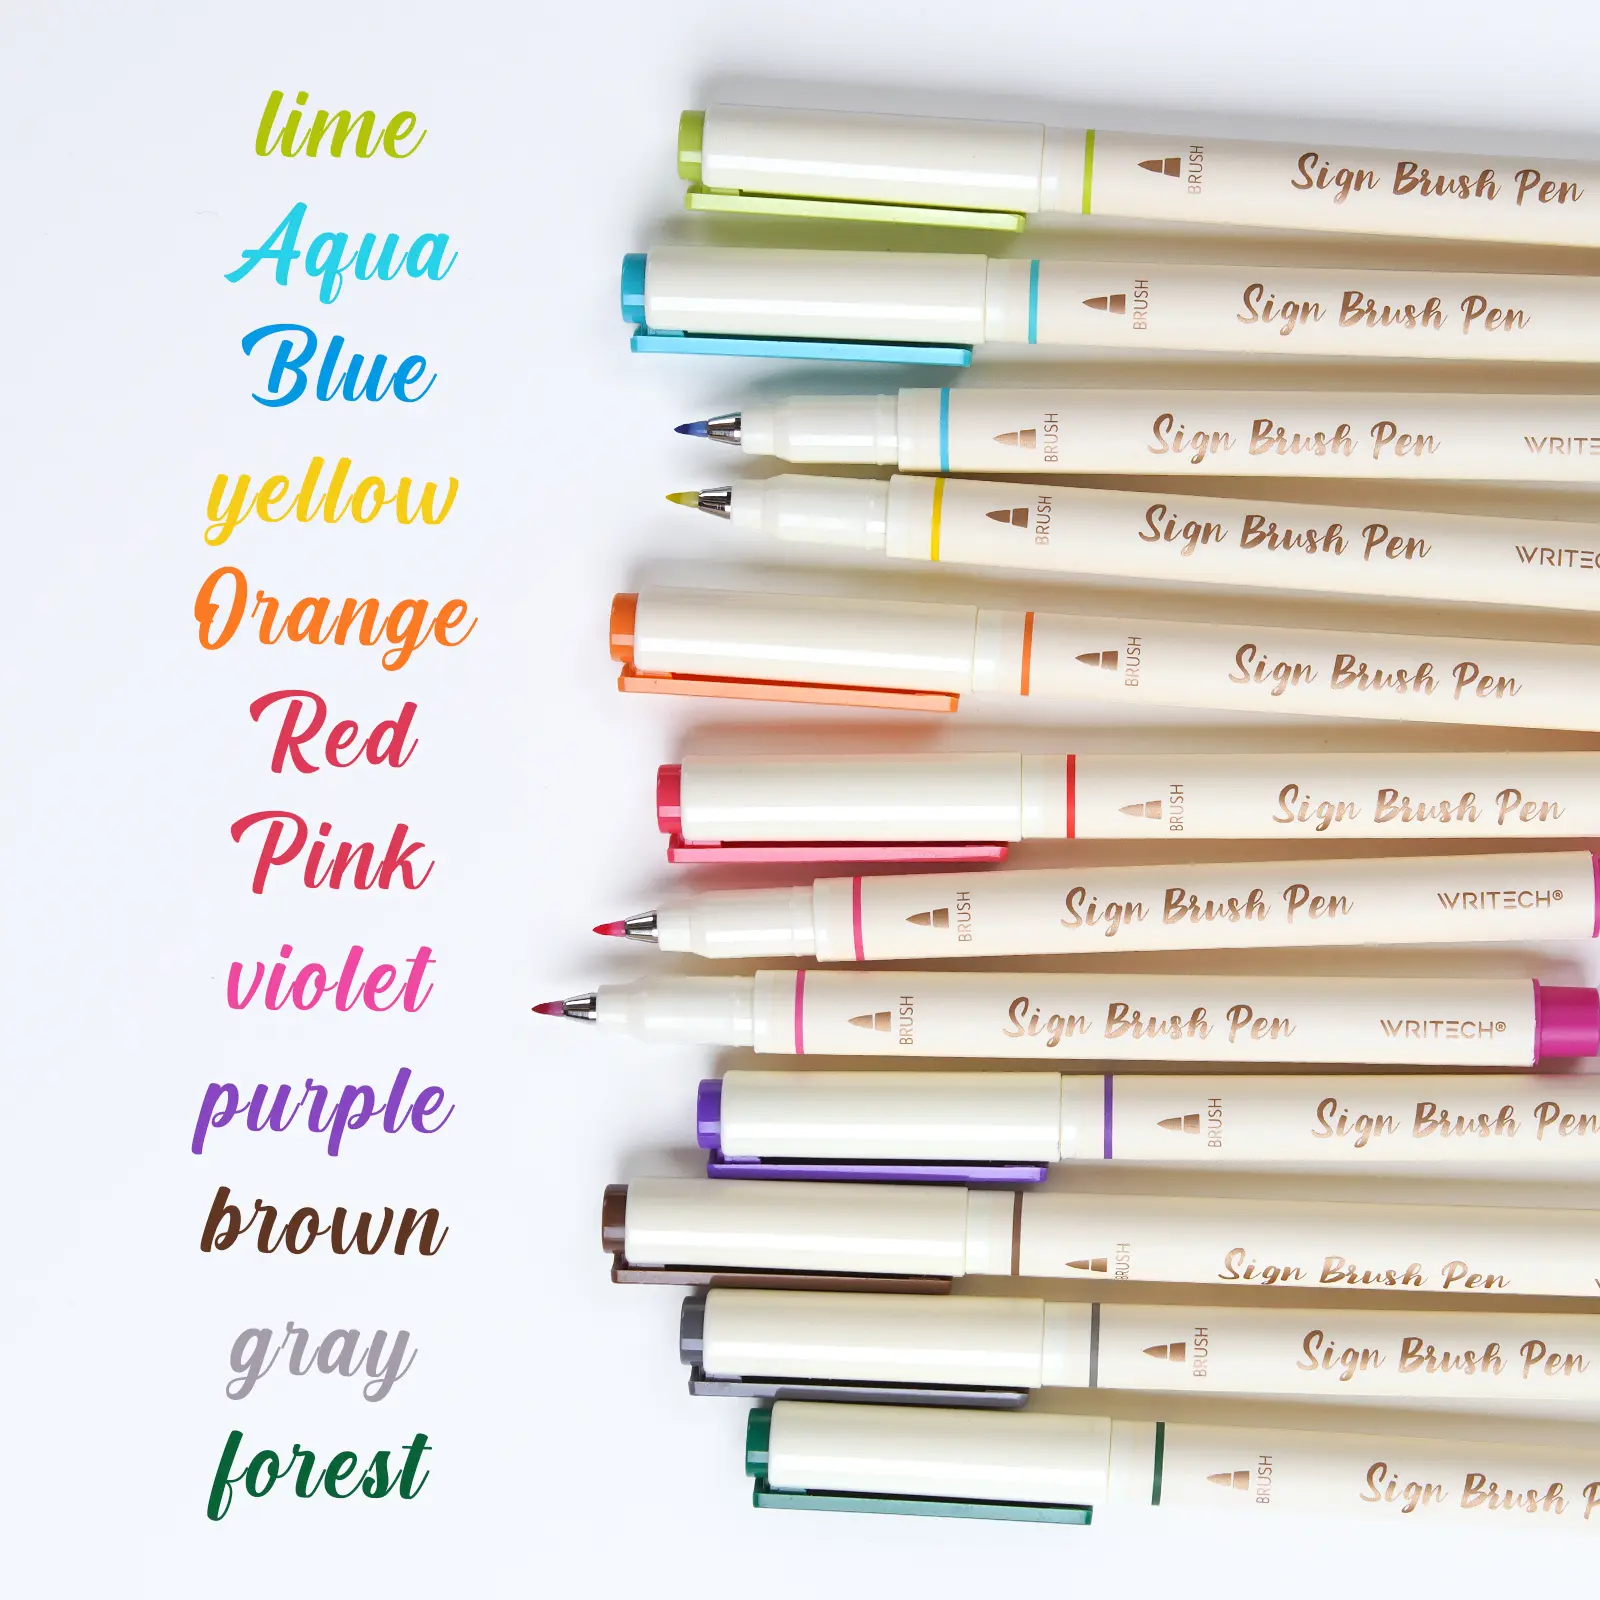 lime
Aqua
Blue
yellow
Orange
Red
Pink
violet
purple
brown
gray
forest
BRUSH Sign Brush Pen
BRUSH Sign Brush Pen
BRUSH Sign Brush Pen WRITE
BRUSH Sign Brush Pen WRITEC
BRUSH Sign Brush Pen
BRUSH Sign Brush Pen
BRUSH Sign Brush Pen WRITECH®
BRUSH Sign Brush Pen WRITECH®
BRUSH Sign Brush Pen
BRUSH Sign Brush Pen
BRUSH Sign Brush Pen
BRUSH Sign Brush P